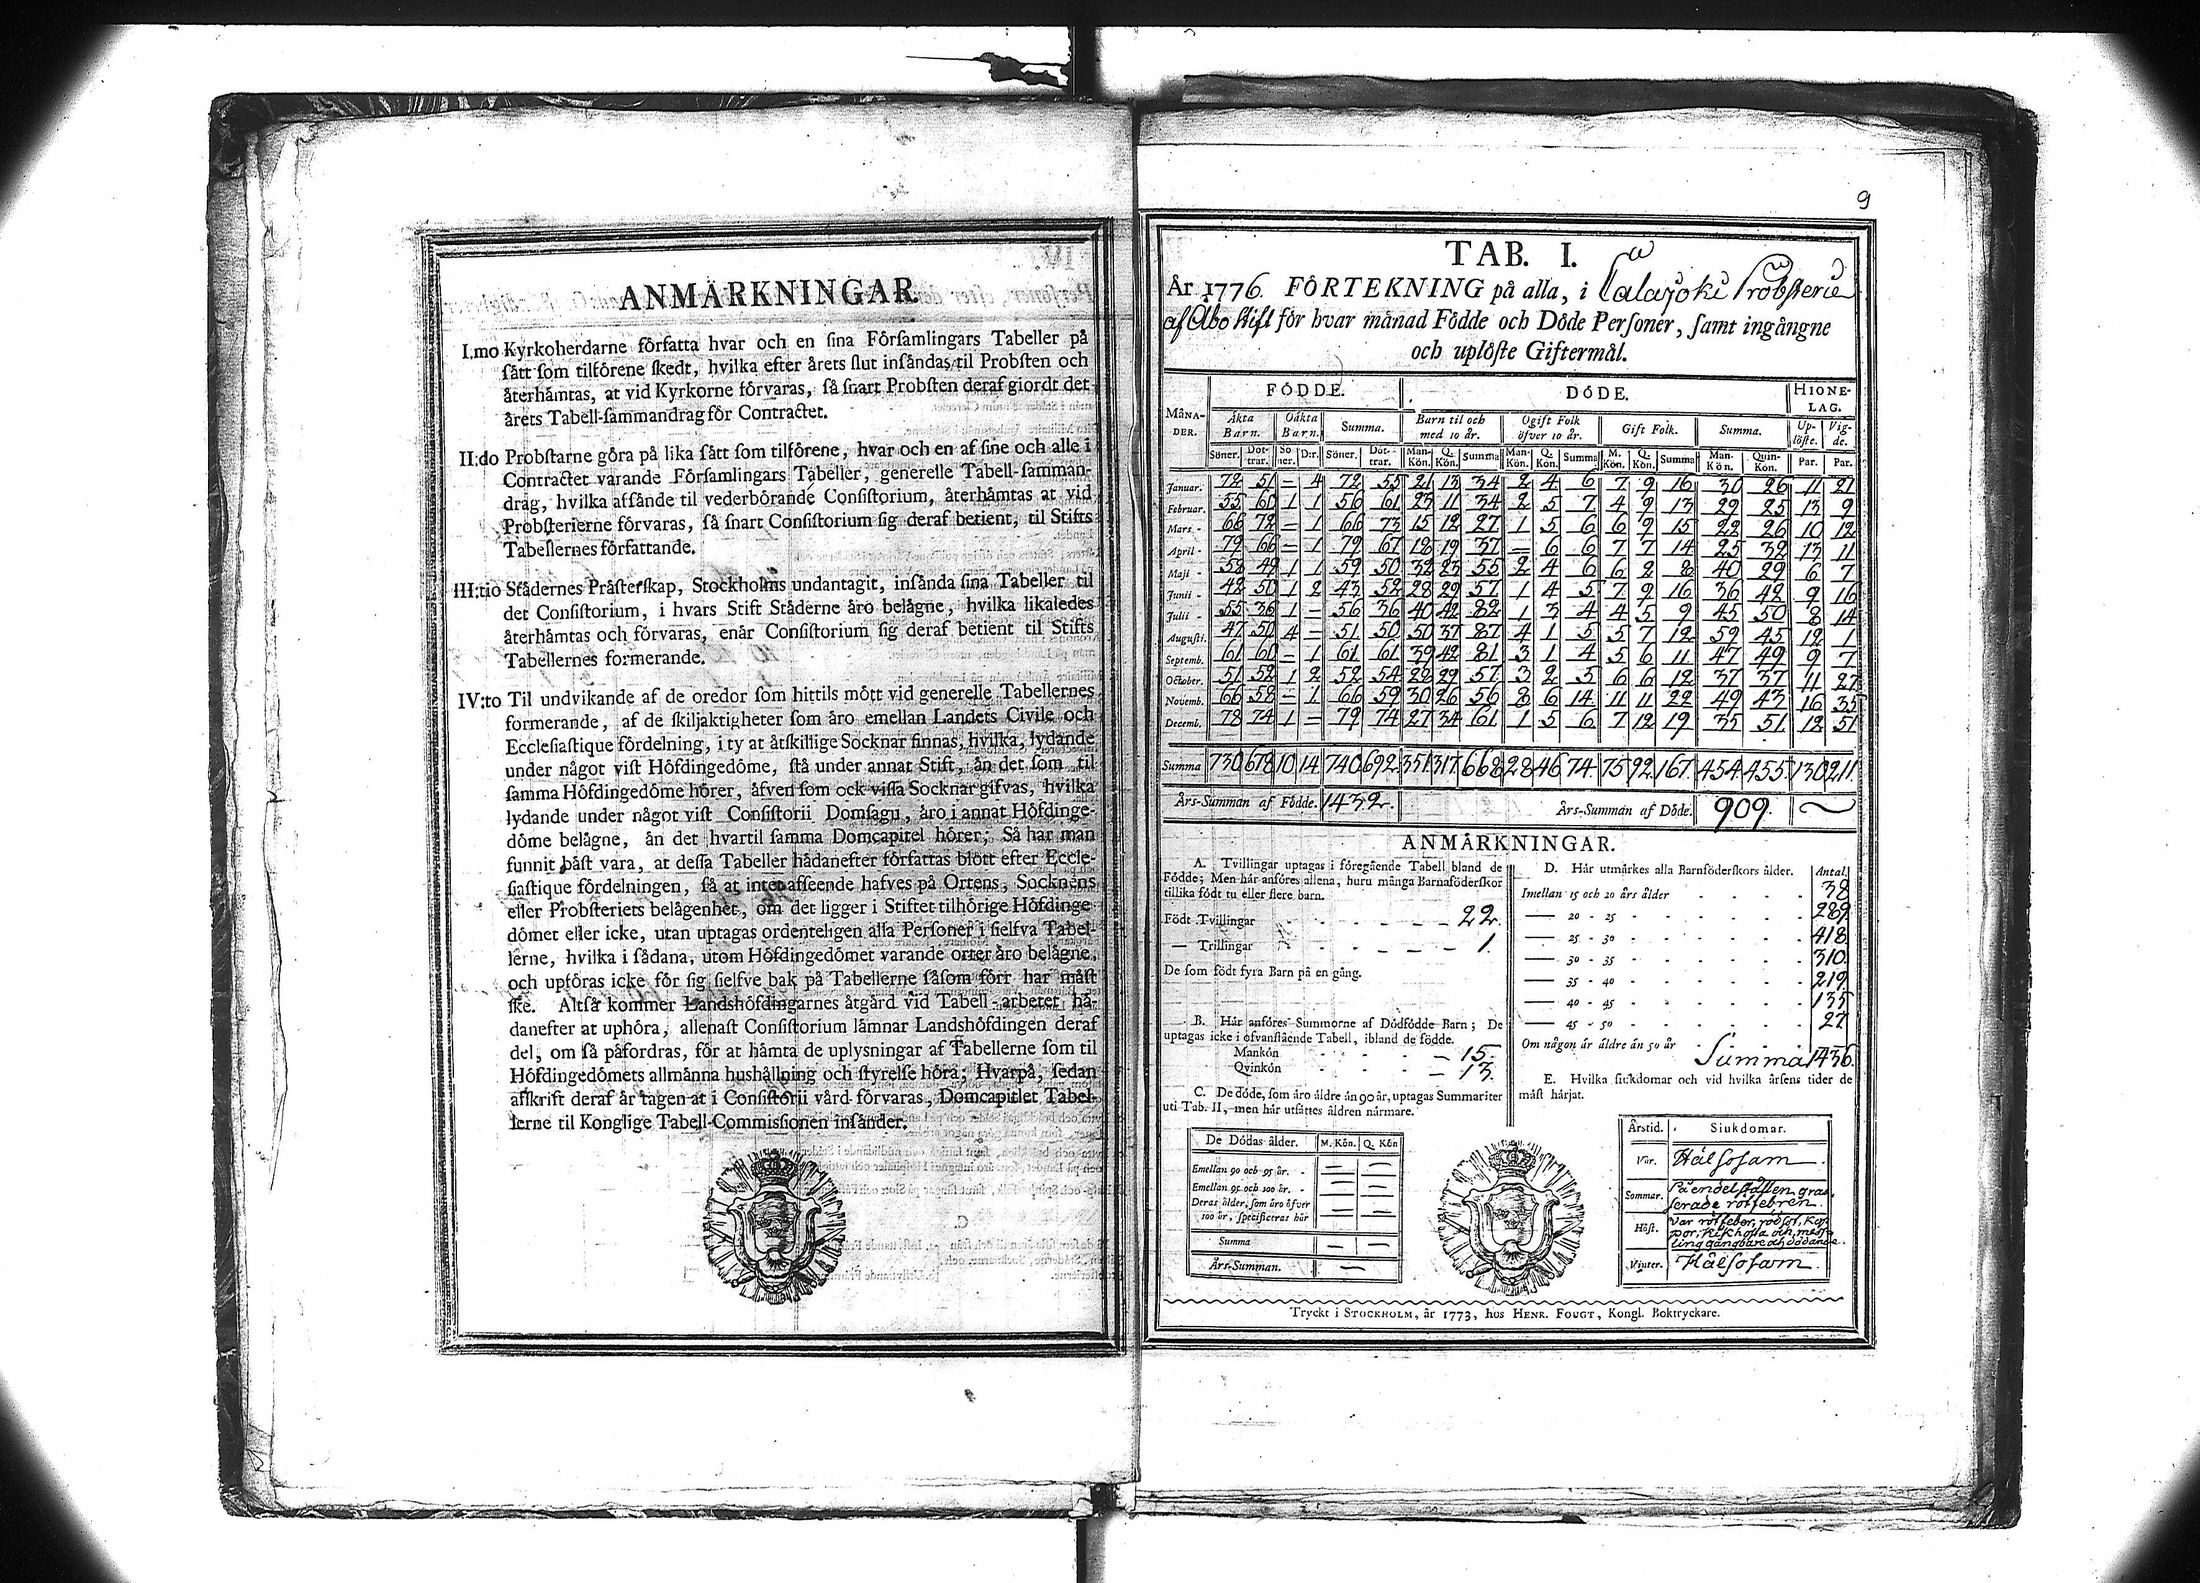 ANMÄRKNINGAR.
I.mo Kyrkoherdarne författa hvar och en sina Församlingars Tabeller på
sätt som tilförene skedt, hvilka efter årets slut insändas til Probsten och
återhämtas, at vid Kyrkorne förvaras, så snart Probsten deraf giordt det
årets Tabell-sammandrag för Contractet.
II:do Probstarne göra på lika sätt som tilförene, hvar och en af sine och alle i
Contractet varande Församlingars Tabeller, generelle Tabell-samman-
drag, hvilka afsände til vederbörande Consistorium, återhämtas at vid
Probsterierne förvaras, så snart Consistorium sig deraf betient, til Stifts
Tabellernes författande.
III:tio Städernes Prästerskap, Stockholms undantagit, insända sina Tabeller til
det Consistorium, i hvars Stift Städerne äro belägne, hvilka likaledes
återhämtas och förvaras, enär Consistorium sig deraf betient til Stifts
Tabellernes formerande.
IV:to Til undvikande af de oredor som hittils mött vid generelle Tabellernes
formerande, af de skiljaktigheter som äro emellan Landets Civile och
Ecclesiastique fördelning, i ty at åtskillige Socknar finnas, hvilka, lydande
under något vist Höfdingedöme, stå under annat Stift, än det som til
samma Höfdingedöme hörer, äfven som ock vissa Socknar gifvas, hvilka
lydande under något vist Consistorii Domsagu, äro i annat Höfdinge-
döme belägne, än det hvartil samma Domcapitel hörer; Så har man
funnit bäst vara, at dessa Tabeller hädanefter författas blott efter Eccle-
siastique fördelningen, så at intet afseende hafves på Ortens, Socknens
eller Probsteriets belägenhet, om det ligger i Stiftet tilhörige Höfdinge-
dömet eller icke, utan uptagas ordenteligen alla Personer i sielfva Tabel-
lerne, hvilka i sådana, utom Höfdingedömet varande orter äro belägne,
och upföras icke för sig sielfve bak på Tabellerne såsom förr har måst
ske. Altså kommer Landshöfdingarnes åtgärd vid Tabell-arbetet hä-
danefter at uphöra, allenast Consistorium lämnar Landshöfdingen deraf
del, om så påfordras, för at hämta de uplysningar af Tabellerne som til
Höfdingedömets allmänna hushållning och styrelse höra; Hvarpå, sedan
afskrift deraf är tagen at i Consistorii vård förvaras, Domcapitlet Tabel-
lerne til Konglige Tabell-Commissionen insänder.
9
TAB. I.
År 1776. FÖRTEKNING på alla, i Calajoki Probsterie
af Åbo stift för hvar månad Födde och Döde Personer, samt ingångne
och uplöste Giftermål.
MÅNA-DER. FÖDDE. DÖDE. HIONE-LAG.
Äkta Barn. Oäkta Barn. Summa. Barn til och med 10 år. Ogift Folk öfver 10 år. Gift Folk. Summa. Uplöste. Vigde.
Söner. Dottrar. Söner. D:r. Söner. Dottrar. Man-Kön. Q. Kön. Summa Man-Kön. Q. Kön. Summa M. Kön. Q. Kön. Summa Man-Kön. Quin-Kön. Par. Par.
Januar. 72 51 = 4 72 55 21 13 34 2 4 6 7 9 16 30 26 11 21
Februar. 55 60 1 1 56 61 23 11 34 2 5 7 4 9 13 29 25 13 9
Mars. 66 72 = 1 66 73 15 12 27 1 5 6 6 9 15 22 26 10 12
April 79 66 = 1 79 67 18 19 37 = 6 6 7 7 14 25 32 13 11
Maji 58 49 1 1 59 50 32 23 55 2 4 6 6 2 8 40 29 6 7
Junii 42 50 1 2 43 52 28 29 57 1 4 5 7 9 16 36 42 9 16
Julii 55 36 1 – 56 36 40 42 82 1 3 4 4 5 9 45 50 8 14
Augusti. 47 50 4 = 51 50 50 37 87 4 1 5 5 7 12 59 45 12 1
Septemb. 61 60 = 1 61 61 39 42 81 3 1 4 5 6 11 47 49 9 7
October. 51 52 1 2 52 54 28 29 57 3 2 5 6 6 12 37 37 11 27
Novemb. 66 58 = 1 66 59 30 26 56 8 6 14 11 11 22 49 43 16 35
Decemb. 78 74 1 = 79 74 27 34 61 1 5 6 7 12 19 35 51 12 51
Summa 730 678 10 14 740 692 351 317 668 28 46 74 75 92 167 454 455 130 211
Års-Summan af Födde. 1432. Års-Summan af Döde. 909.
ANMÄRKNINGAR.
A. Tvillingar uptagas i föregående Tabell bland de
Födde; Men här anföres allena, huru många Barnaföderskor
tillika födt tu eller flere barn.
Födt Tvillingar 22.
— Trillingar 1.
De som födt fyra Barn på en gång.
B. Här anföres Summorne af Dödfödde Barn; De
uptagas icke i ofvanstående Tabell, ibland de födde.
Mankön 15.
Qvinkön 13.
C. De döde, som äro äldre än 90 år, uptagas Summariter
uti Tab. II, men här utsättes åldren närmare.
De Dödas ålder. M. Kön. Q. Kön
Emellan 90 och 95 år. — —
Emellan 95 och 100 år. — —
Deras ålder, som äro öfver — —
100 år, specificeras här — —
Summa — —
Års-Summan. —
D. Här utmärkes alla Barnföderskors ålder. Antal.
Imellan 15 och 20 års ålder 38
— 20 - 25 289
— 25 - 30 418
— 30 - 35 310
— 35 - 40 219
— 40 - 45 135
— 45 - 50 27
Om någon är äldre än 50 år
Summa 1436.
E. Hvilka siukdomar och vid hvilka årsens tider de
mäst härjat.
Årstid. Siukdomar.
Vår. Hälsosam
Sommar. På en del ställen gras-
serade rötfebren.
Höst. Var rötfeber, rödsot, Kop-
por, Kikhosta och mäss-
ling gångbare och dödande.
Vinter. Hälsosam.
Tryckt i STOCKHOLM, år 1773, hos HENR. FOUGT, Kongl. Boktryckare.